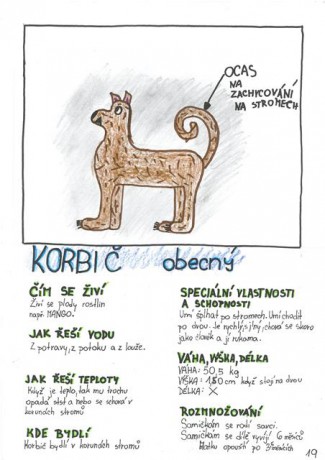 OCAS
NA
ZACHYCOVÁNÍ
NA STROMECH
KORBIČ obecný
ČÍM SE ŽIVÍ
Živí se plody rostlin
např. MANGO.
JAK ŘEŠÍ VODU
Z potravy, z potoku a z louže.
JAK ŘEŠÍ TEPLOTY
Když je teplo, tak mu trochu
opadá srst a nebo se schová v
korunách stromů
KDE BYDLÍ
Korbič bydlí v korunách stromů
SPECIÁLNÍ VLASTNOSTI
A SCHOPNOSTI
Umí šplhat po stromech. Umí chodit
po dvou. Je rychlý,
jako člověk a jí rukama.
VÁHA, VÝŠKA, DÉLKA
VÁHA: 50,5 kg
VÝŠKA: 180 cm když stojí na dvou
DÉLKA: X
ROZMNOŽOVÁNÍ
Samičkám se rodí savci.
Samičkám se dítě vyvíjí 6 měsíců
Matku opouští po 5 měsících
19